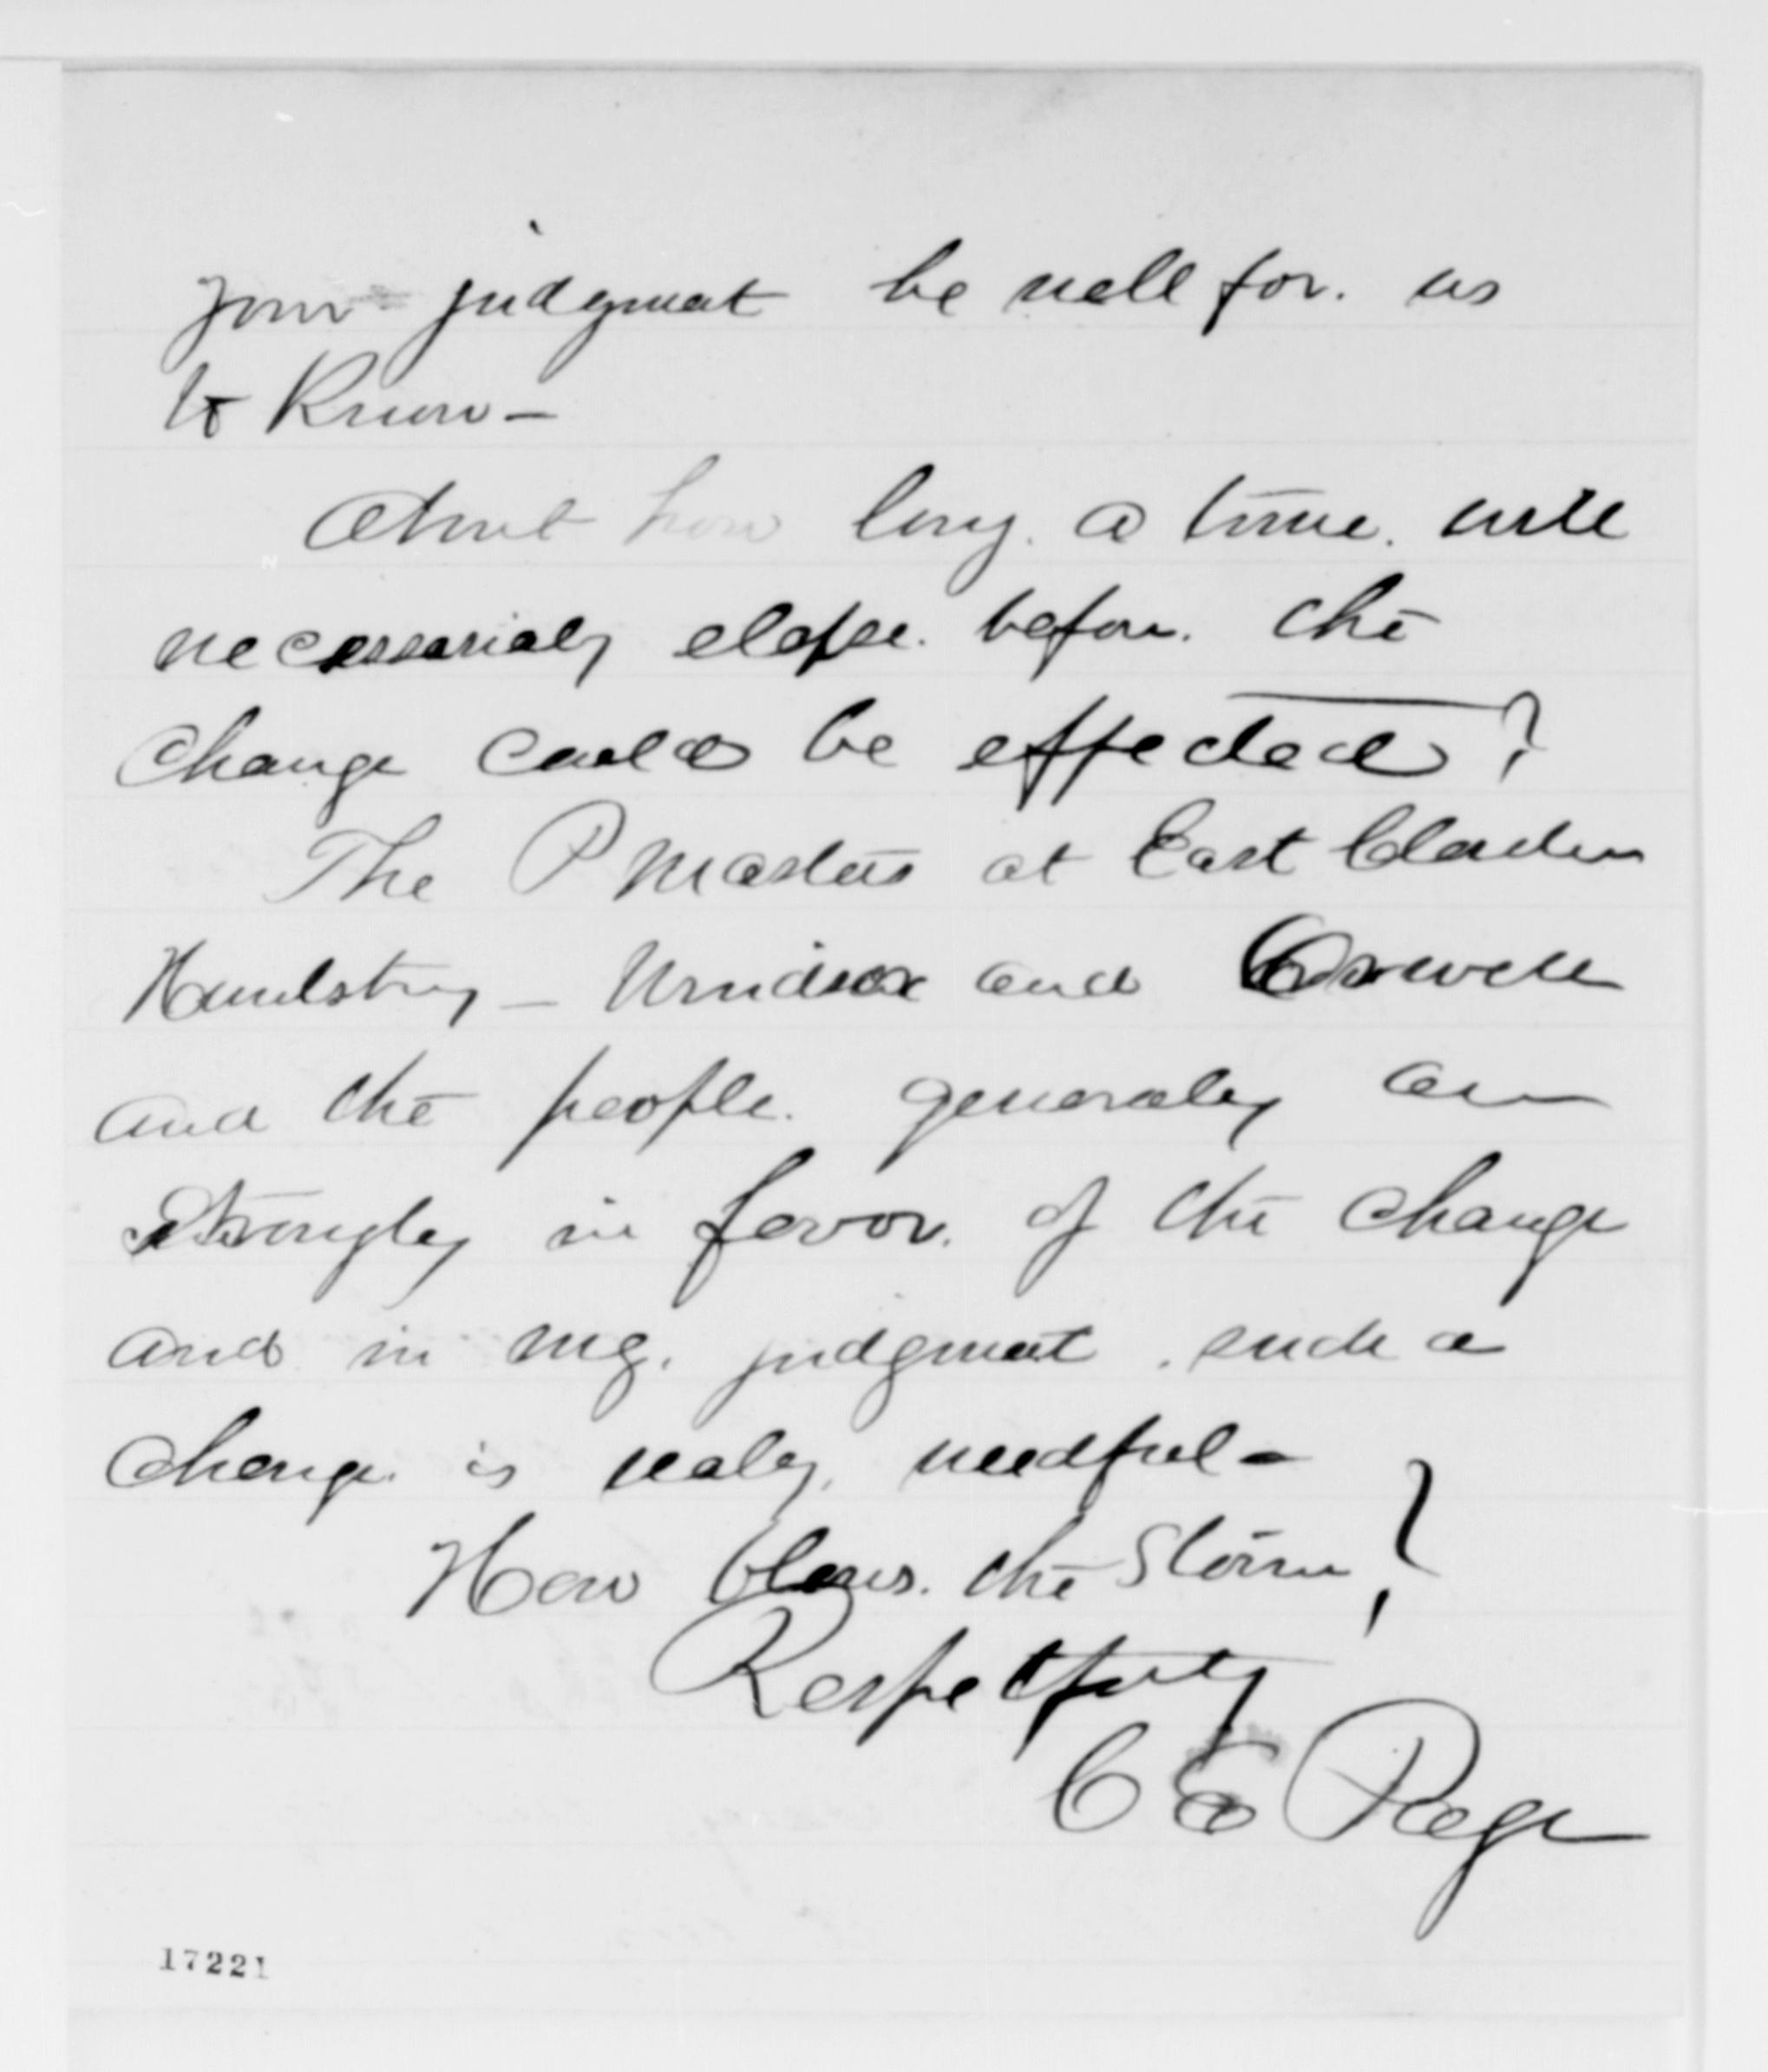 your judgment be well for. us
to Know –
About how long. a time. will
necessarialy elapse. before. the
change could be effected?
The P Masters at East Claridon
Huntsburg – Windsor and Orwell
and the people. generaley are
strongley in favor. of the change
and in my. judgment. such a
change. is realey. needful –
How blows. the Storm?
Respectfuly
C E Page
17221